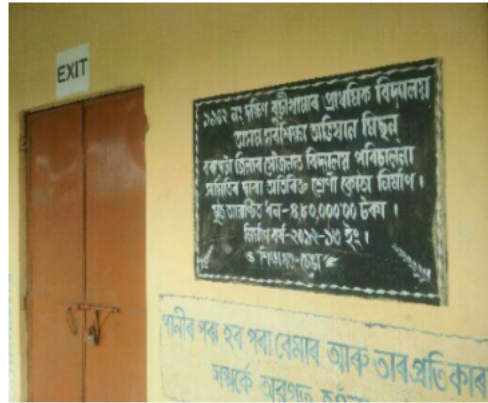 EXIT
১৯০২ নং দক্ষিণ বটীয়ামাৰ প্ৰাথমিক বিদ্যালয়
অসম সৰ্বশিক্ষা অভিযান মিছন্
জিলাৰ সৌজন্যত বিদ্যালয় পৰিচালনা
সমিতিৰ দ্বাৰা অতিৰিক্ত শ্ৰেণী কোঠা নিৰ্মাণ।
ধন-৪,৪০,০০০'০০ টকা।
নিৰ্মাণ বৰ্ষ-২০১২-১৩ ইং।
পানীৰ পৰা হব পৰা বেমাৰ আৰু তাৰ প্ৰতিকাৰ
সম্পৰ্কে অৱগত